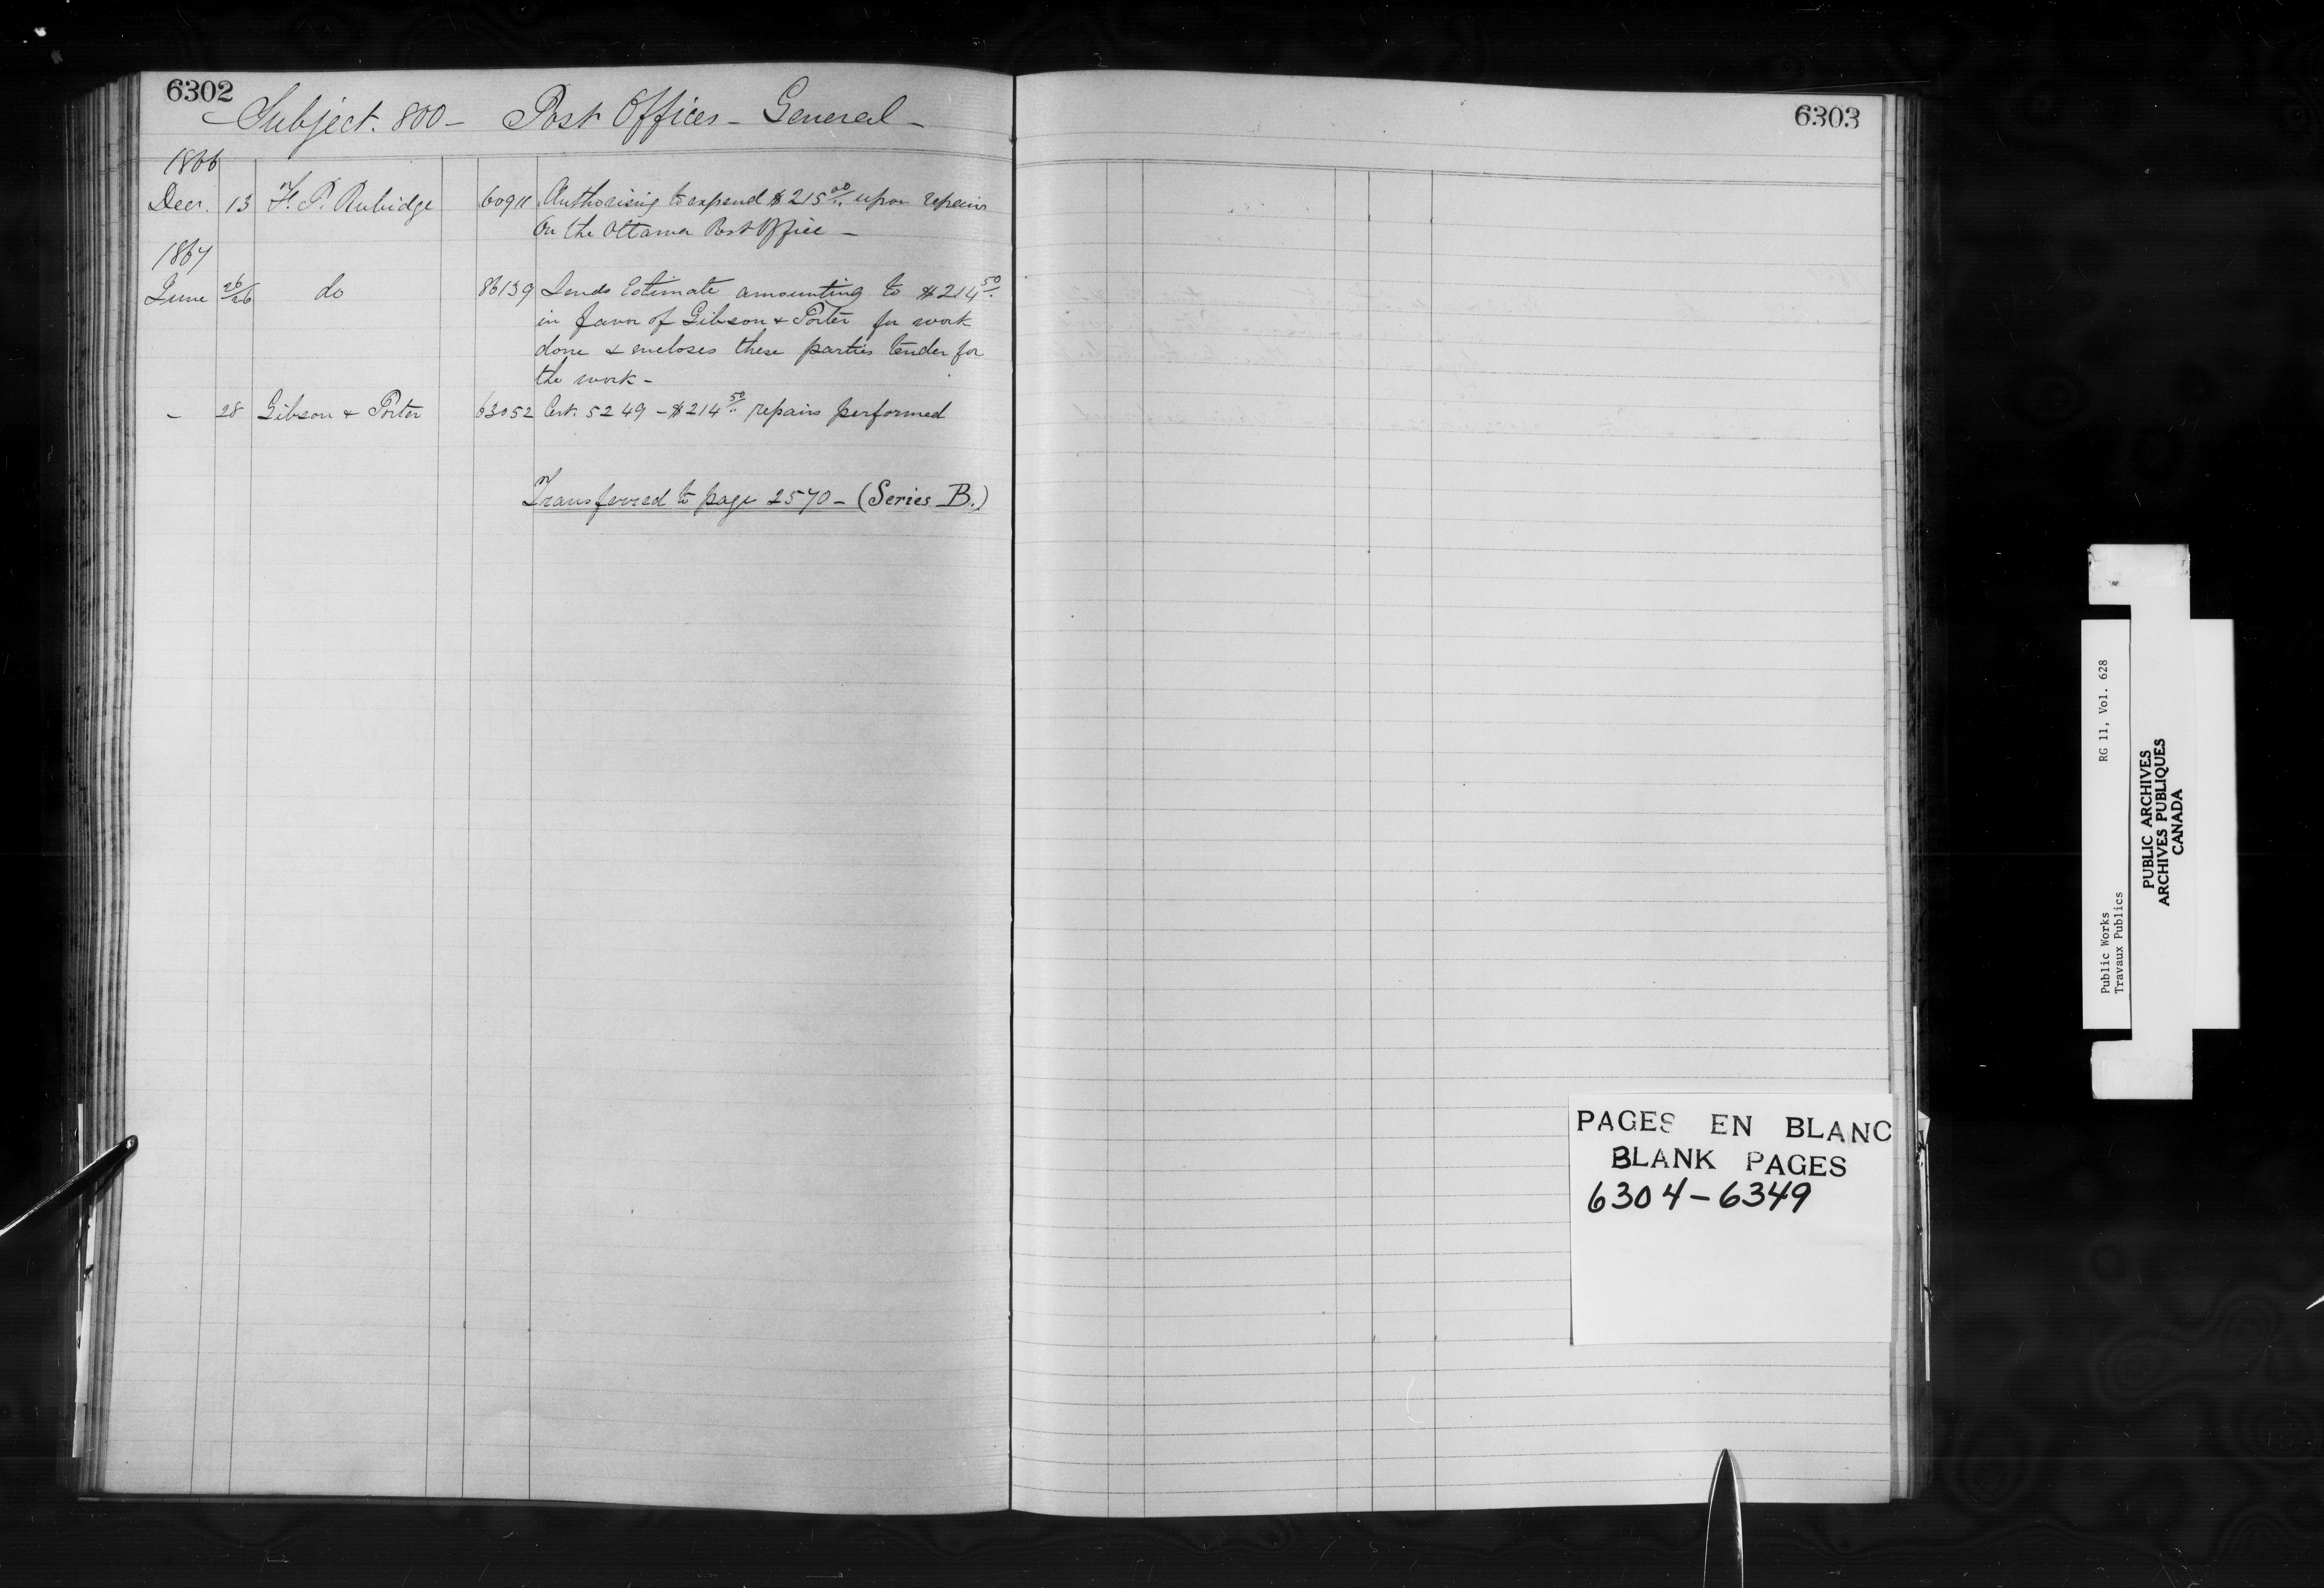 6302
Subject. 800 - Post Offices - General -
1866
Decr. 13 F. P. Rubidge 60911 Authorising to expend $215.00 upon repairs
on the Ottawa Post Office -
1867
June 26/26 do 86139 Sends Estimate amounting to $214.50
in favor of Gibson & Porter for work
done & encloses these parties tender for
the work -
- 28 Gibson & Porter 63052 Cert. 5249 - $214.50 repairs performed
Transferred to page 2570 - (Series B.)
6303
PAGES EN BLANC
BLANK PAGES
6304-6349
Public Works RG 11, Vol. 628
Travaux Publics
PUBLIC ARCHIVES
ARCHIVES PUBLIQUES
CANADA